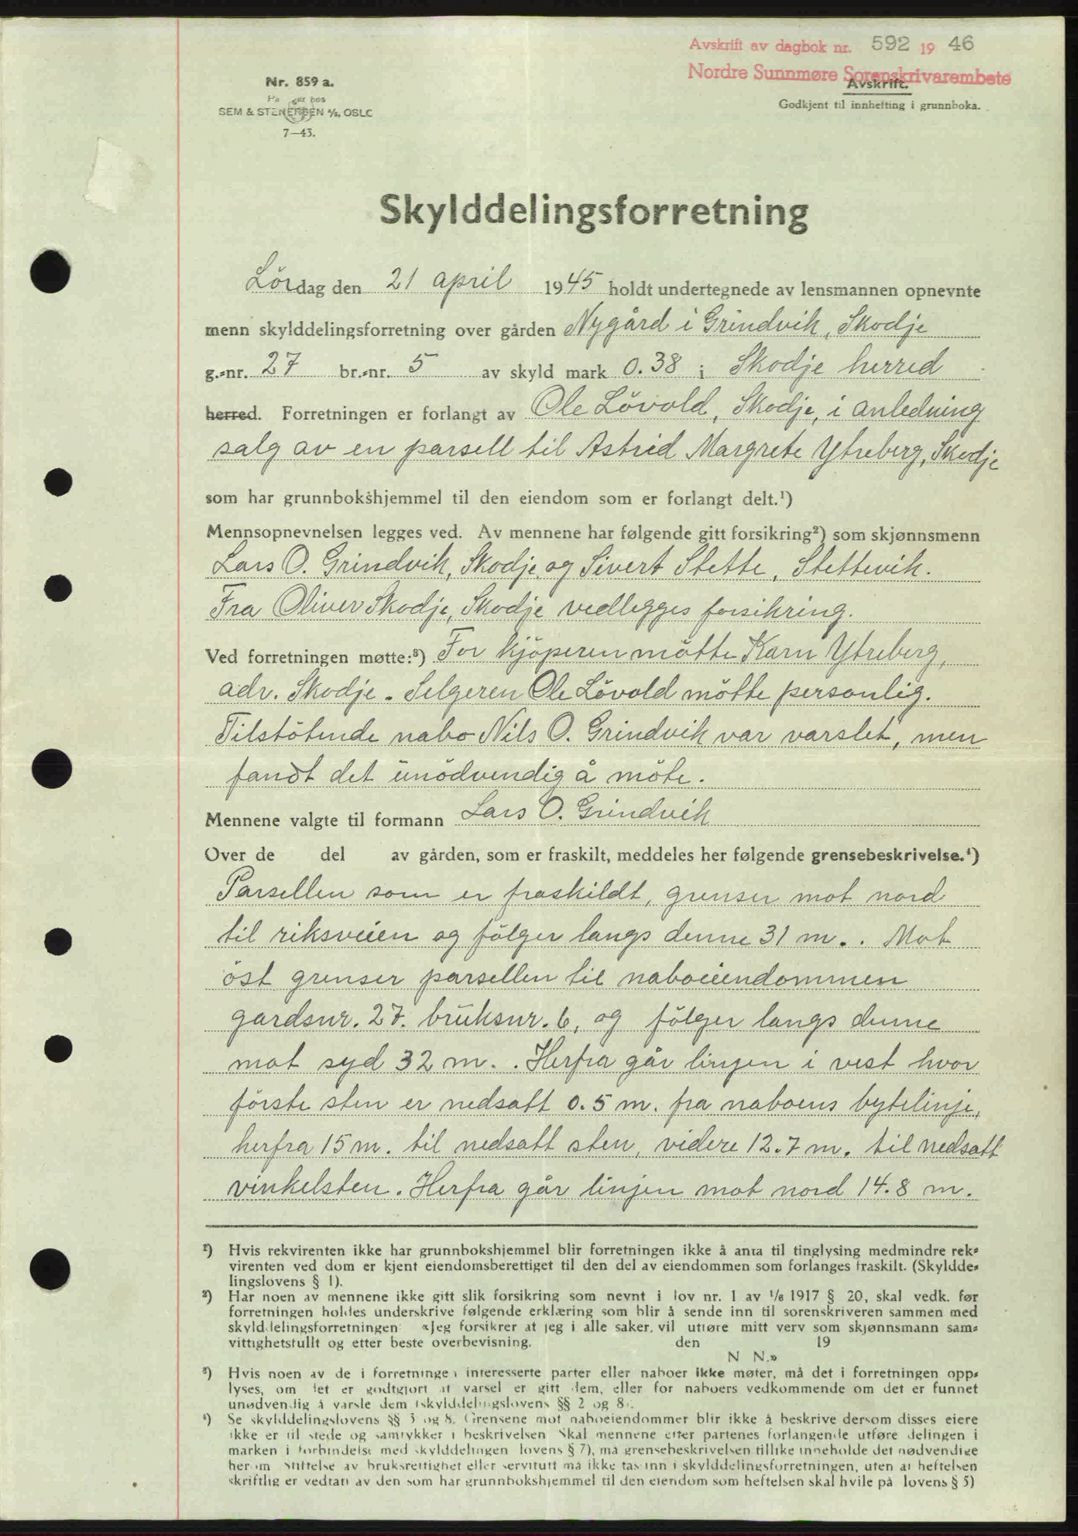 Avskrift av dagbok nr. 592 19 46
Nordre Sunnmøre Sorenskrivarembete
Nr. 859 a.
Avskrift.
Godkjent til innhefting i grunnboka.
SEM & STENERSEN A/S, OSLO
7—43.
Skylddelingsforretning
Lördag den 21 april 1945 holdt undertegnede av lensmannen opnevnte
menn skylddelingsforretning over gården Nygård i Grindvik, Skodje
g.-nr. 27 br.-nr. 5 av skyld mark 0.38 i Skodje herred
herred. Forretningen er forlangt av Ole Lövold, Skodje, i anledning
salg av en parsell til Astrid Margrete Ytreberg, Skodje
som har grunnbokshjemmel til den eiendom som er forlangt delt.¹)
Mennsopnevnelsen legges ved. Av mennene har følgende gitt forsikring²) som skjønnsmenn
Lars O. Grindvik, Skodje, og Sivert Stette, Stettevik.
Fra Oliver Skodje, Skodje vedlegges forsikring.
Ved forretningen møtte:³) For kjöperen mötte Karn Ytreberg,
adr. Skodje. Selgeren Ole Lövold mötte personlig.
Tilstötende nabo Nils O. Grindvik var varslet, men
fandt det unödvendig å möte.
Mennene valgte til formann Lars O. Grindvik
Over de del av gården, som er fraskilt, meddeles her følgende grensebeskrivelse.⁴)
Parsellen som er fraskildt, grenser mot nord
til riksveien og fölger langs denne 31 m.. Mot
öst grenser parsellen til naboeiendommen
gardsnr. 27. bruksnr. 6, og fölger langs denne
mot syd 32 m.. Herfra går linjen i vest hvor
förste sten er nedsatt 0.5 m. fra naboens bytelinje,
herfra 15 m. til nedsatt sten, videre 12.7 m. til nedsatt
vinkelsten. Herfra går linjen mot nord 14.8 m.
¹) Hvis rekvirenten ikke har grunnbokshjemmel blir forretningen ikke å anta til tinglysing medmindre rek-
virenten ved dom er kjent eiendomsberettiget til den del av eiendommen som forlanges fraskilt. (Skyldde-
lingslovens § 1).
²) Har noen av mennene ikke gitt slik forsikring som nevnt i lov nr. 1 av 1/6 1917 § 20, skal vedk. før
forretningen holdes underskrive følgende erklæring som blir å sende inn til sorenskriveren sammen med
skylddelingsforretningen: «Jeg forsikrer at jeg i alle saker, vil utføre mitt verv som skjønnsmann sam-
vittighetsfullt og etter beste overbevisning. den 19
N. N.»
³) Hvis noen av de i forretningen interesserte parter eller naboer ikke møter, må det i forretningen opp-
lyses, om det er godtgjort at varsel er gitt dem, eller for naboers vedkommende om det er funnet
unødvendig å varsle dem (skylddelingslovens §§ 2 og 8).
⁴) Se skylddelingslovens §§ 3 og 8. Grensene mot naboeiendommer blir ikke å beskrive dersom disses eiere
ikke er til stede og samtykker i beskrivelsen. Skal mennene etter partenes forlangende utføre delingen i
marken i forbindelse med skylddelingen (lovens § 7), må grensebeskrivelsen tillike inneholde det nødvendige
herom. Stiftelse av bruksrettighet eller servitutt må ikke tas inn i skylddelingsforretningen, uten at heftelsen
skriftlig er vedtatt av den som har grunnbokshjemmel til den eiendom som heftelsen skal hvile på (lovens § 5)